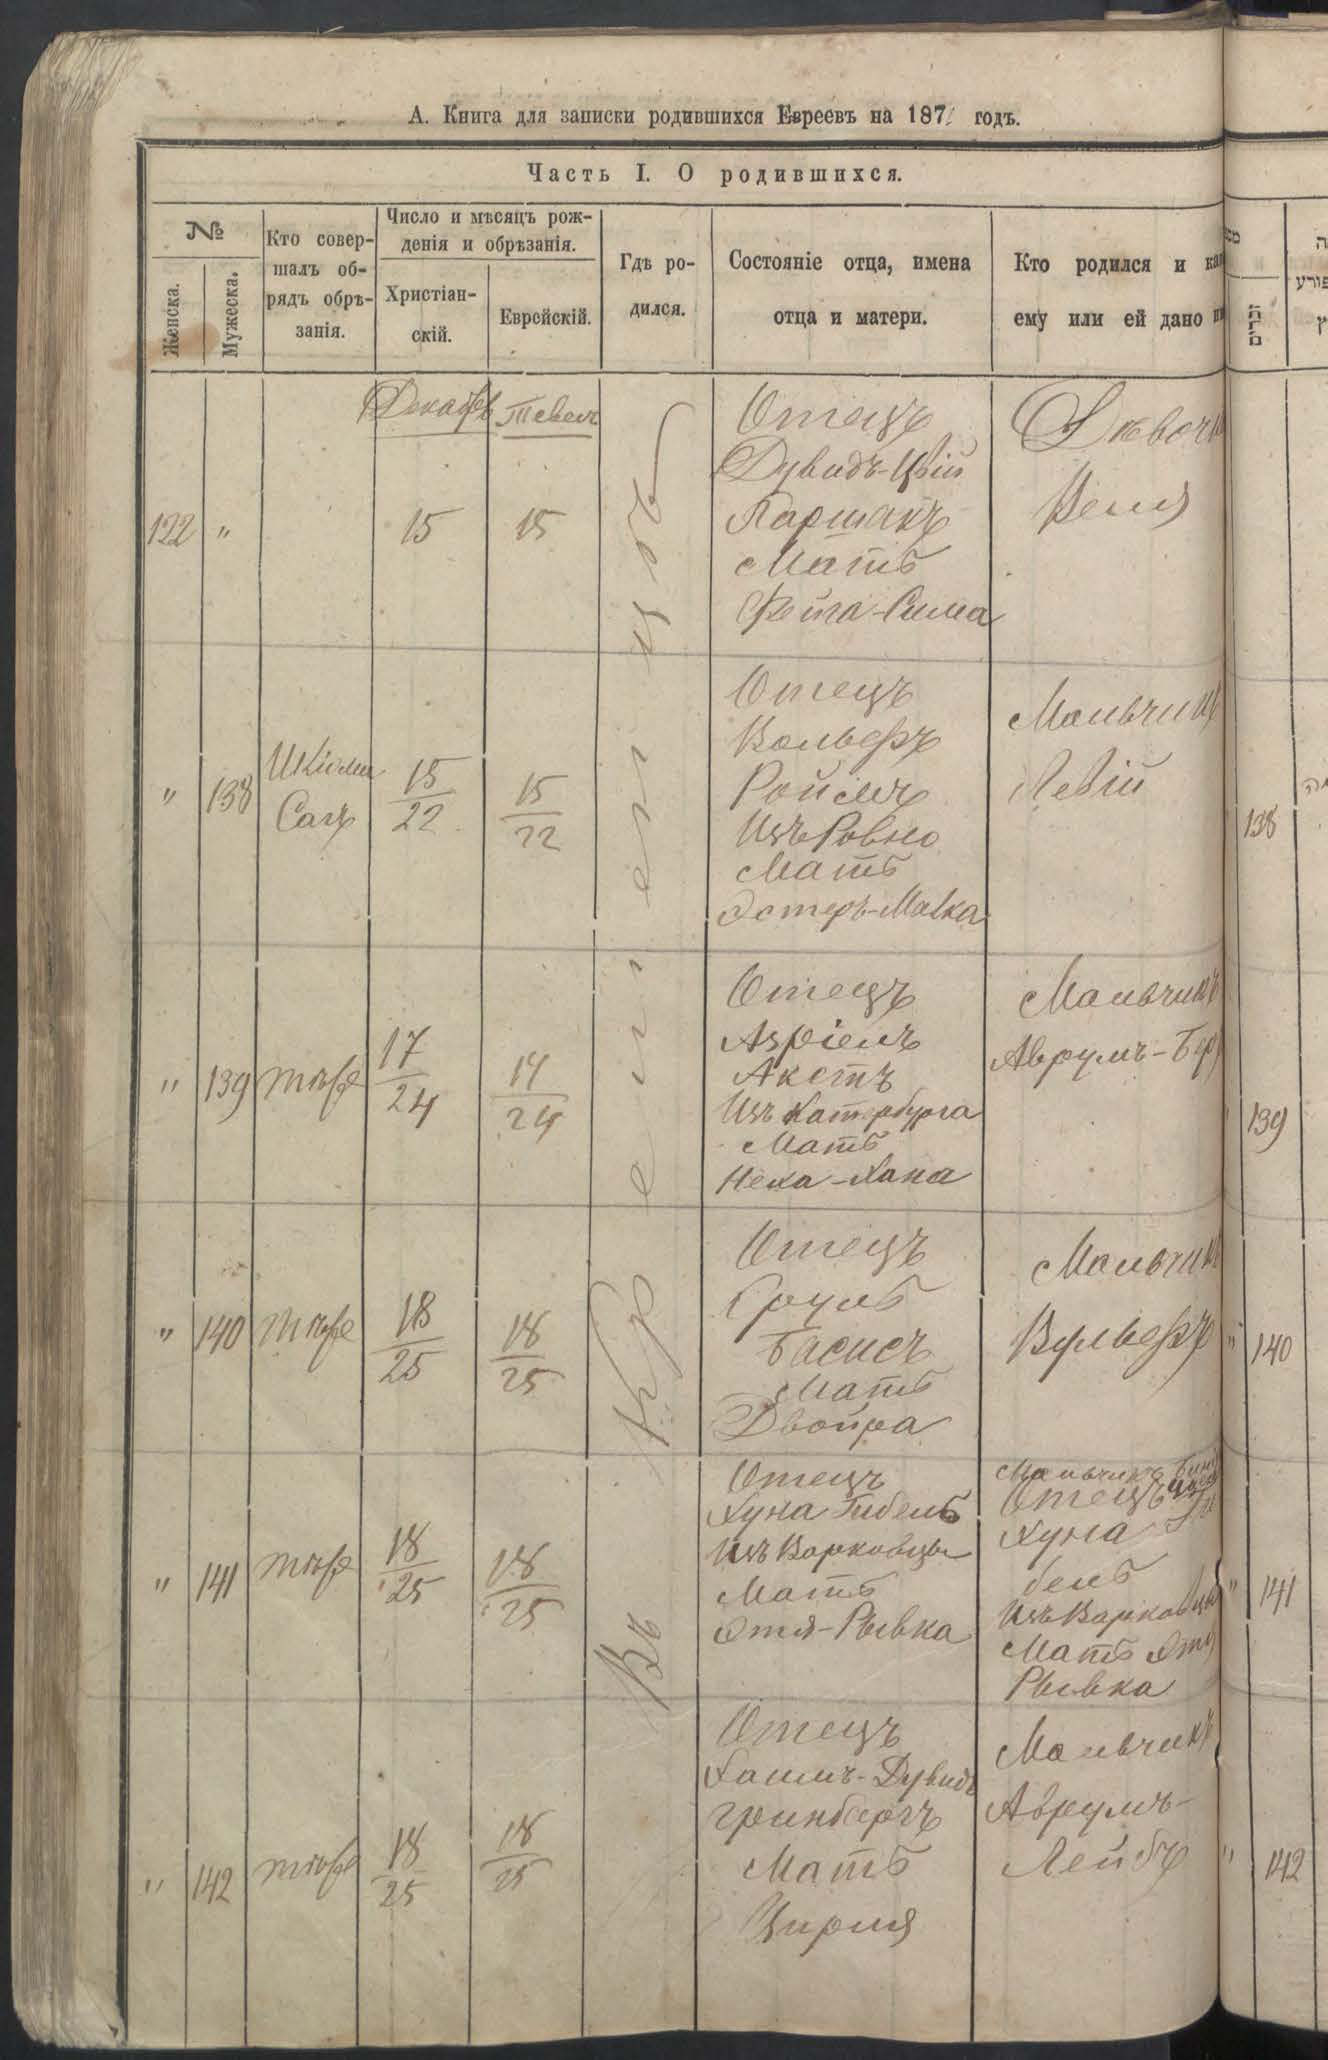 А. Книга для записки родившихся Евреевъ на 187 годъ.
Часть I. О родившихся.
№
Женска.
Мужеска.
Кто совер-
шалъ об-
рядъ обрѣ-
занія.
Число и мѣсяцъ рож-
денія и обрѣзанія.
Христіан-
скій.
Еврейскій.
Гдѣ ро-
дился.
Состояніе отца, имена
отца и матери.
Кто родился и как
ему или ей дано
Въ Кременецъ
Декабрь
Тевель
122
"
15
15
Отецъ
Дувидъ-Цвій
Паршакъ
Мать
Фейга-Сима
Дѣвочк
Веля
"
138
Шліома
Сагъ
15
22
15
22
Отецъ
Вольфъ
Ройзмъ
Изъ Ровно
Мать
Эстеръ-Малка
Мальчикъ
Левій
138
"
139
тотъ же
17
24
17
24
Отецъ
Азріель
Акстъ
Изъ Катербурга
Мать
Неха-Хана
Мальчикъ
Аврумъ-Бер
139
"
140
тотъ же
18
25
18
25
Отецъ
Сруль
Басисъ
Мать
Двойра
Мальчикъ
Вульфъ
" 140
"
141
тотъ же
18
25
18
25
Отецъ
Хуна Гибель
Изъ Варковцы
Мать
Этя-Рывка
Мальчикъ
Отецъ
Хуна Ги
бель
Изъ Варковцы
Мать Этя
Рывка
" 141
"
142
тотъ же
18
25
18
25
Отецъ
Хаимъ-Дувидъ
Гринбергъ
Мать
Цирля
Мальчикъ
Аврумъ-
Лейбъ
" 142